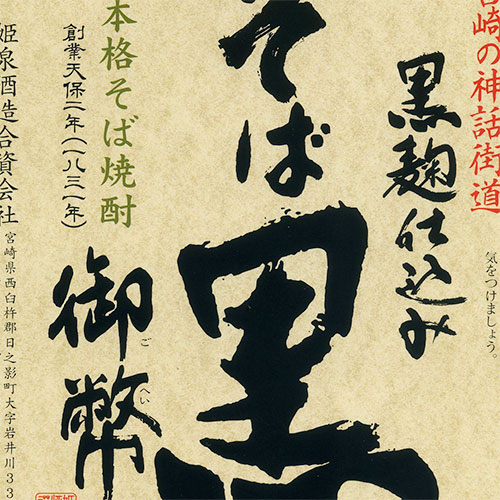 宮崎の神話街道
気をつけましょう。
黒麹仕込み
そば黒
御幣
ごへい
本格そば焼酎
創業天保二年(一八三一年)
姫泉酒造合資会社
宮崎県西臼杵郡日之影町大字岩井川33